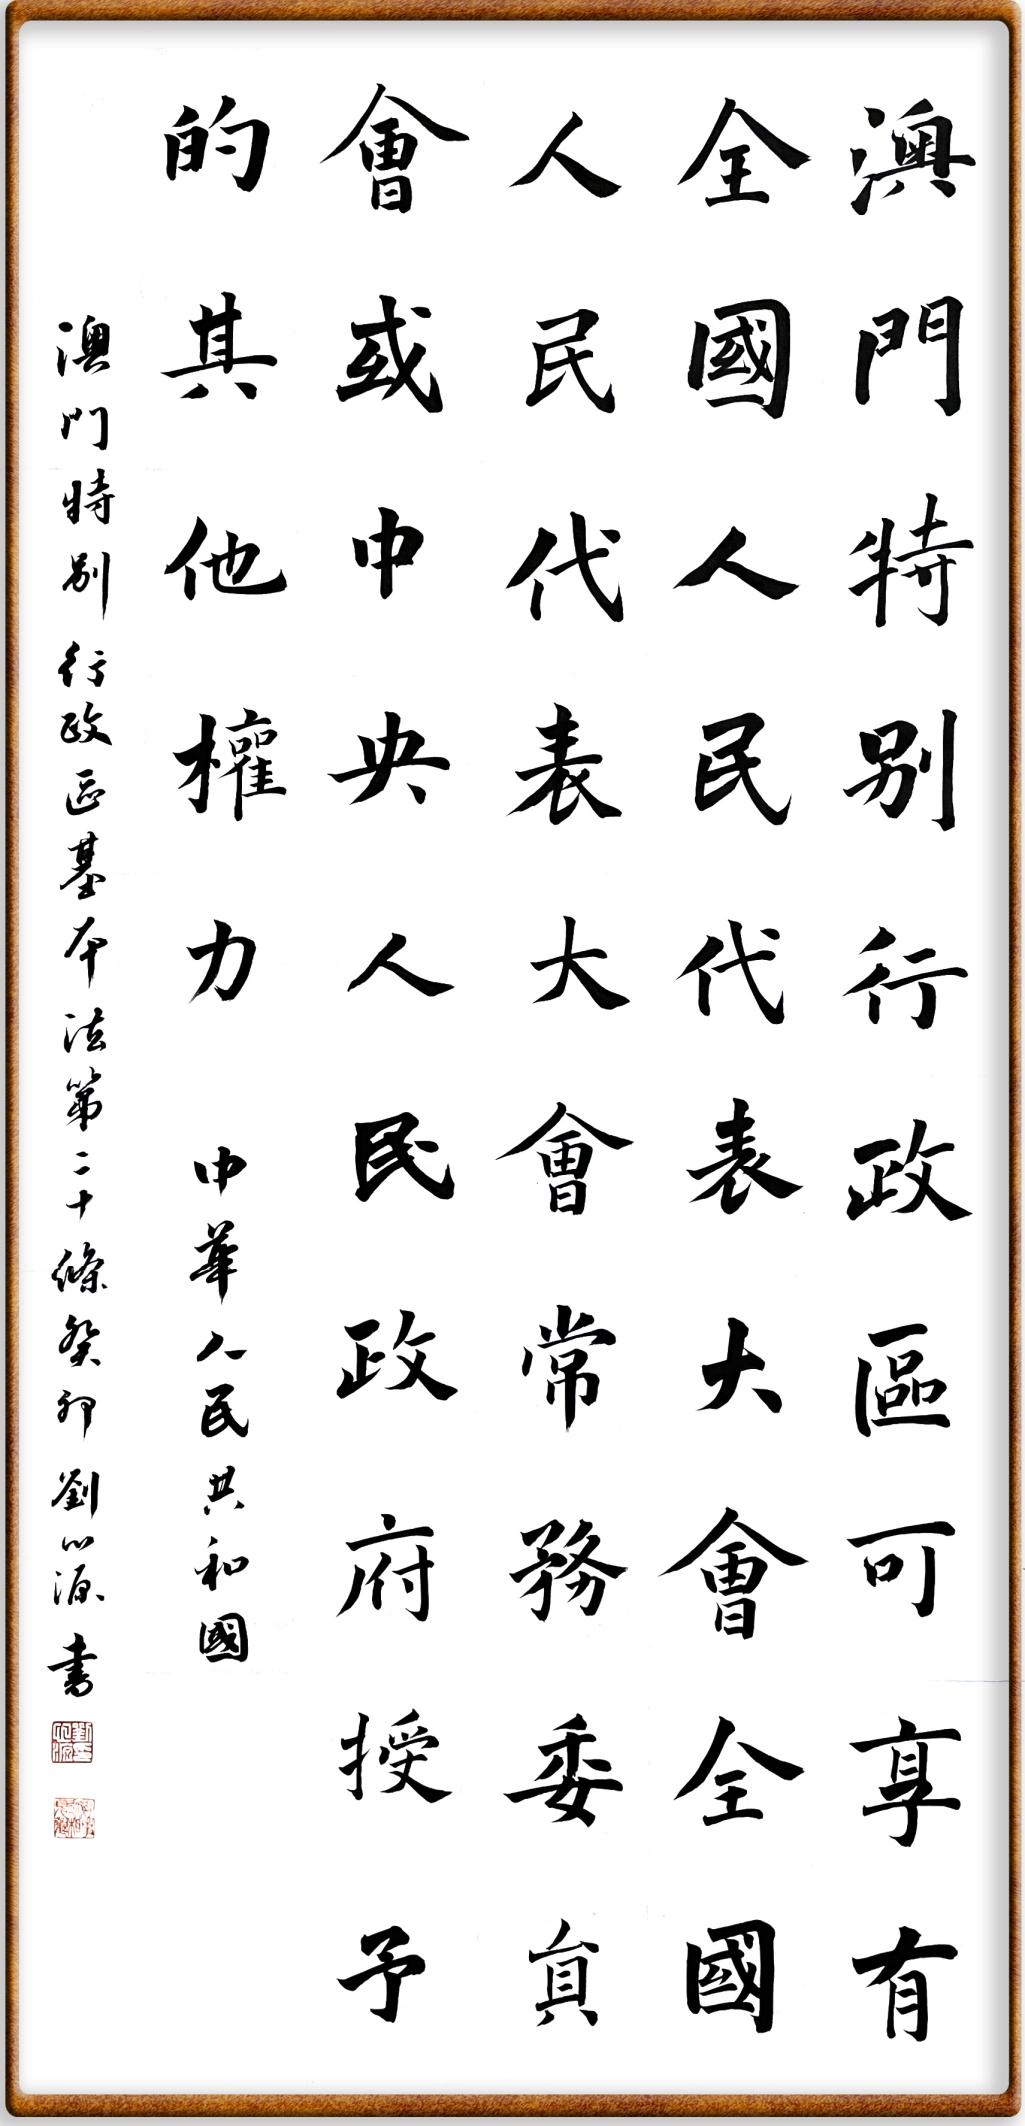 澳門特别行政區可享有
全國人民代表大會全國
人民代表大會常務委員
會或中央人民政府授予
的其他權力 中華人民共和國
澳門特别行政區基本法第二十條癸卯劉心源书